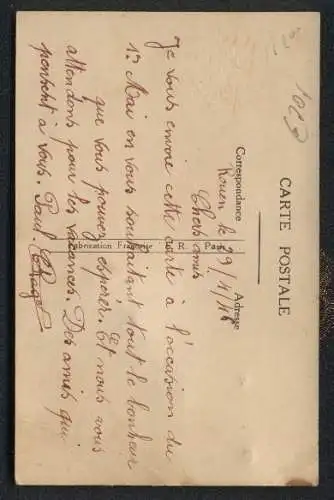 CARTE POSTALE
Correspondance
Adresse
Rouen le 29/4/16
Chers amis
Je vous envoie cette carte à l'occasion du
1er Mai en vous souhaitant tout le bonheur
que vous pouvez espérer. Et nous vous
attendons pour les vacances. Des amis qui
pensent à vous. Paul.
Fabrication Française
R. Paris